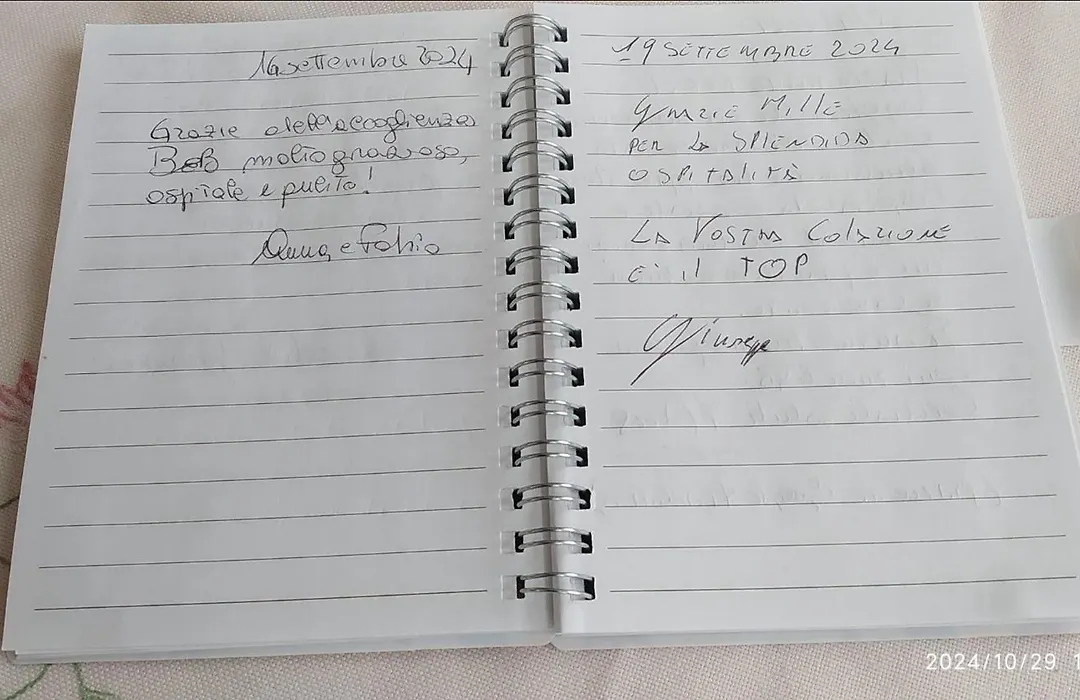 16 settembre 2024
Grazie dell'accoglienza
BeB molto grazioso,
ospitale e pulito!
Anna e Fabio
19 SETTEMBRE 2024
GRAZIE MILLE
PER LA SPLENDIDA
OSPITALITÀ
LA VOSTRA COLAZIONE
E' il TOP
Giuseppe
2024/10/29